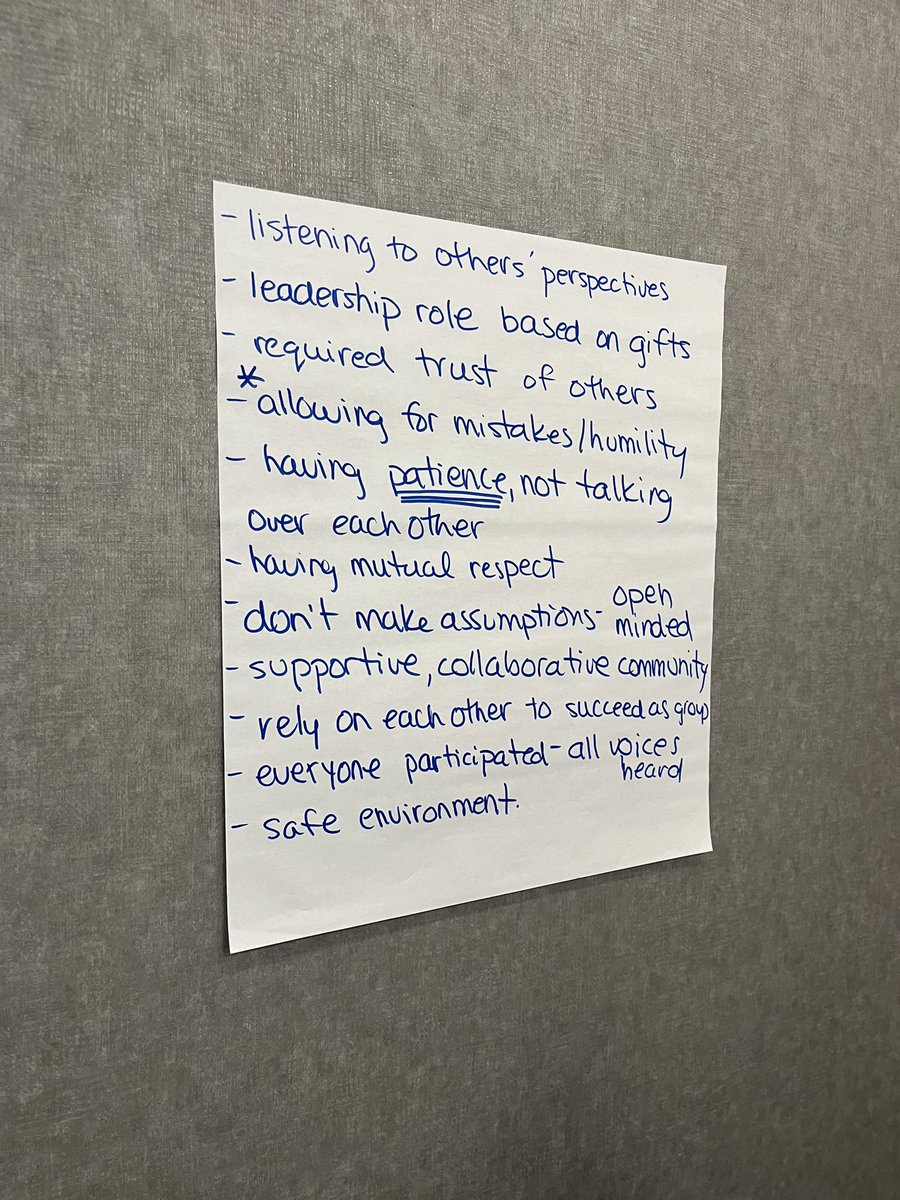 - listening to others' perspectives
- leadership role based on gifts
- required trust of others
* - allowing for mistakes/humility
- having patience, not talking
over each other
- having mutual respect
- don't make assumptions - open
minded
- supportive, collaborative community
- rely on each other to succeed as group
- everyone participated - all voices
heard
- safe environment.